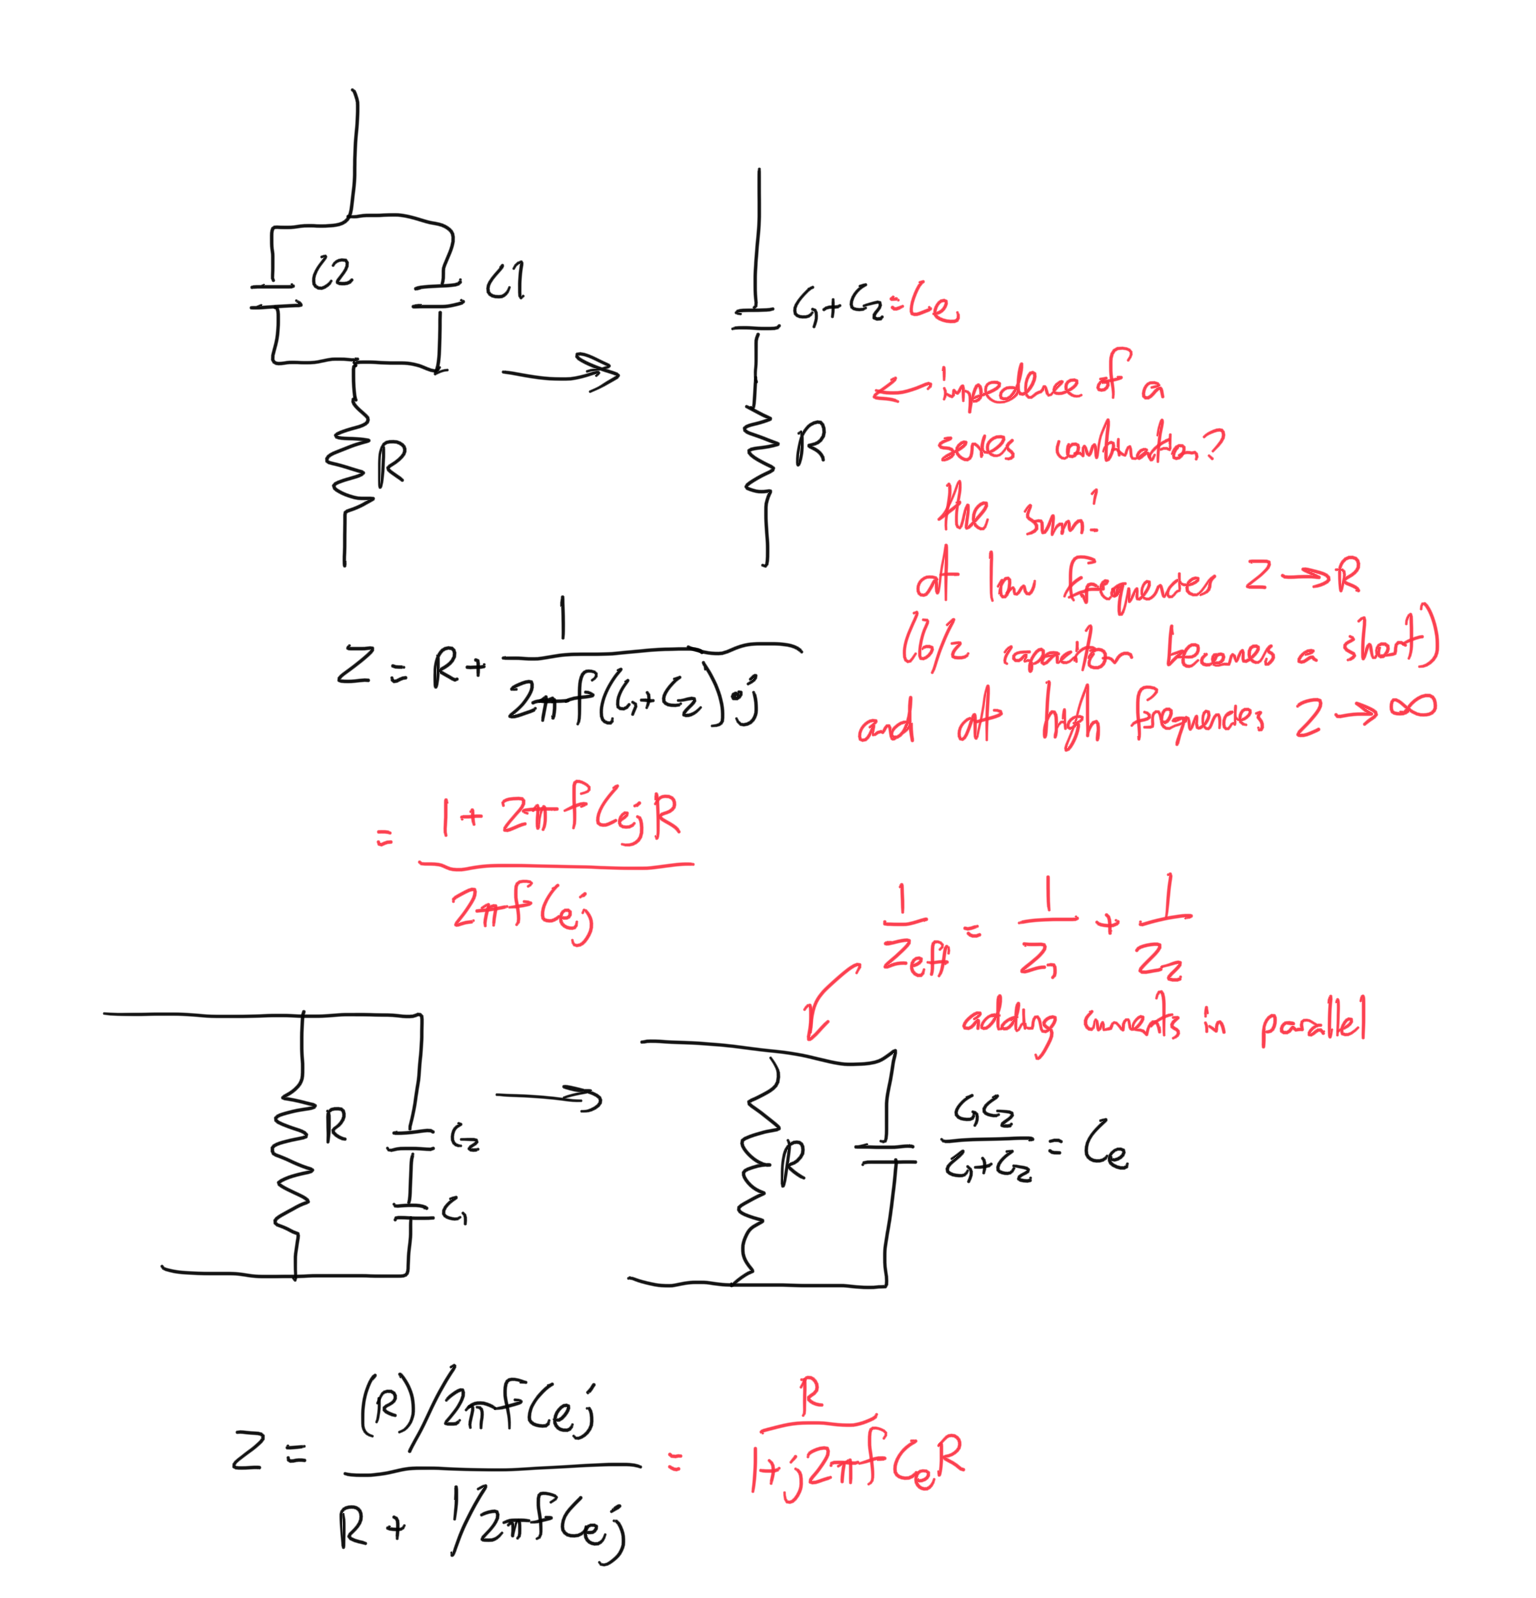 C2
C1
R
C₁+C₂=Ce
R
← impedence of a
series combination?
the sum!
at low frequencies Z→R
(b/z capacitor becomes a short)
and at high frequencies Z→∞
Z = R + 1/(2πf(C₁+C₂)·j)
= (1 + 2πfCejR)/(2πfCej)
1/Zeff = 1/Z₁ + 1/Z₂
adding currents in parallel
R
C₂
C₁
R
C₁C₂/(C₁+C₂) = Ce
Z = ((R)/2πfCej)/(R + 1/2πfCej) = R/(1+j2πfCeR)